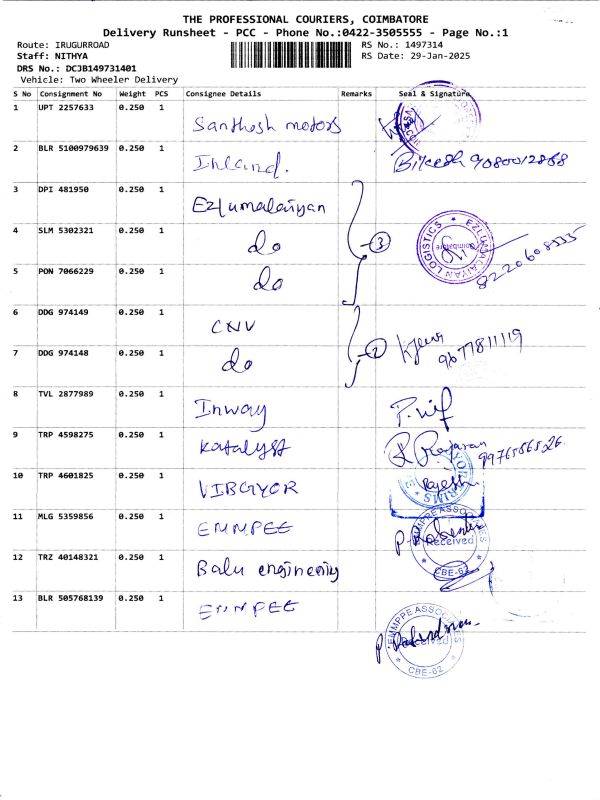 THE PROFESSIONAL COURIERS, COIMBATORE
Delivery Runsheet - PCC - Phone No.:0422-3505555 - Page No.:1
Route: IRUGURROAD
RS No.: 1497314
Staff: NITHYA
RS Date: 29-Jan-2025
DRS No.: DCJB149731401
Vehicle: Two Wheeler Delivery
S No Consignment No Weight PCS Consignee Details Remarks Seal & Signature
1 UPT 2257633 0.250 1 Santhosh motors
2 BLR 5100979639 0.250 1 Inland. 9080012868
3 DPI 481950 0.250 1 Ezlumalaiyan
4 SLM 5302321 0.250 1 do 3 EZLUMALAIYAN LOGISTICS Coimbatore 8220608335
5 PON 7066229 0.250 1 do
6 DDG 974149 0.250 1 CNV
7 DDG 974148 0.250 1 do 2 9677811119
8 TVL 2877989 0.250 1 Inway
9 TRP 4598275 0.250 1 Katalyst
10 TRP 4601825 0.250 1 VIBGYOR Rajesh
11 MLG 5359856 0.250 1 EMMPEE EMMPPE ASSOCIATES Received CBE-62
12 TRZ 40148321 0.250 1 Balu enginering
13 BLR 505768139 0.250 1 EMMPEE EMMPPE ASSOCIATES Received CBE-62